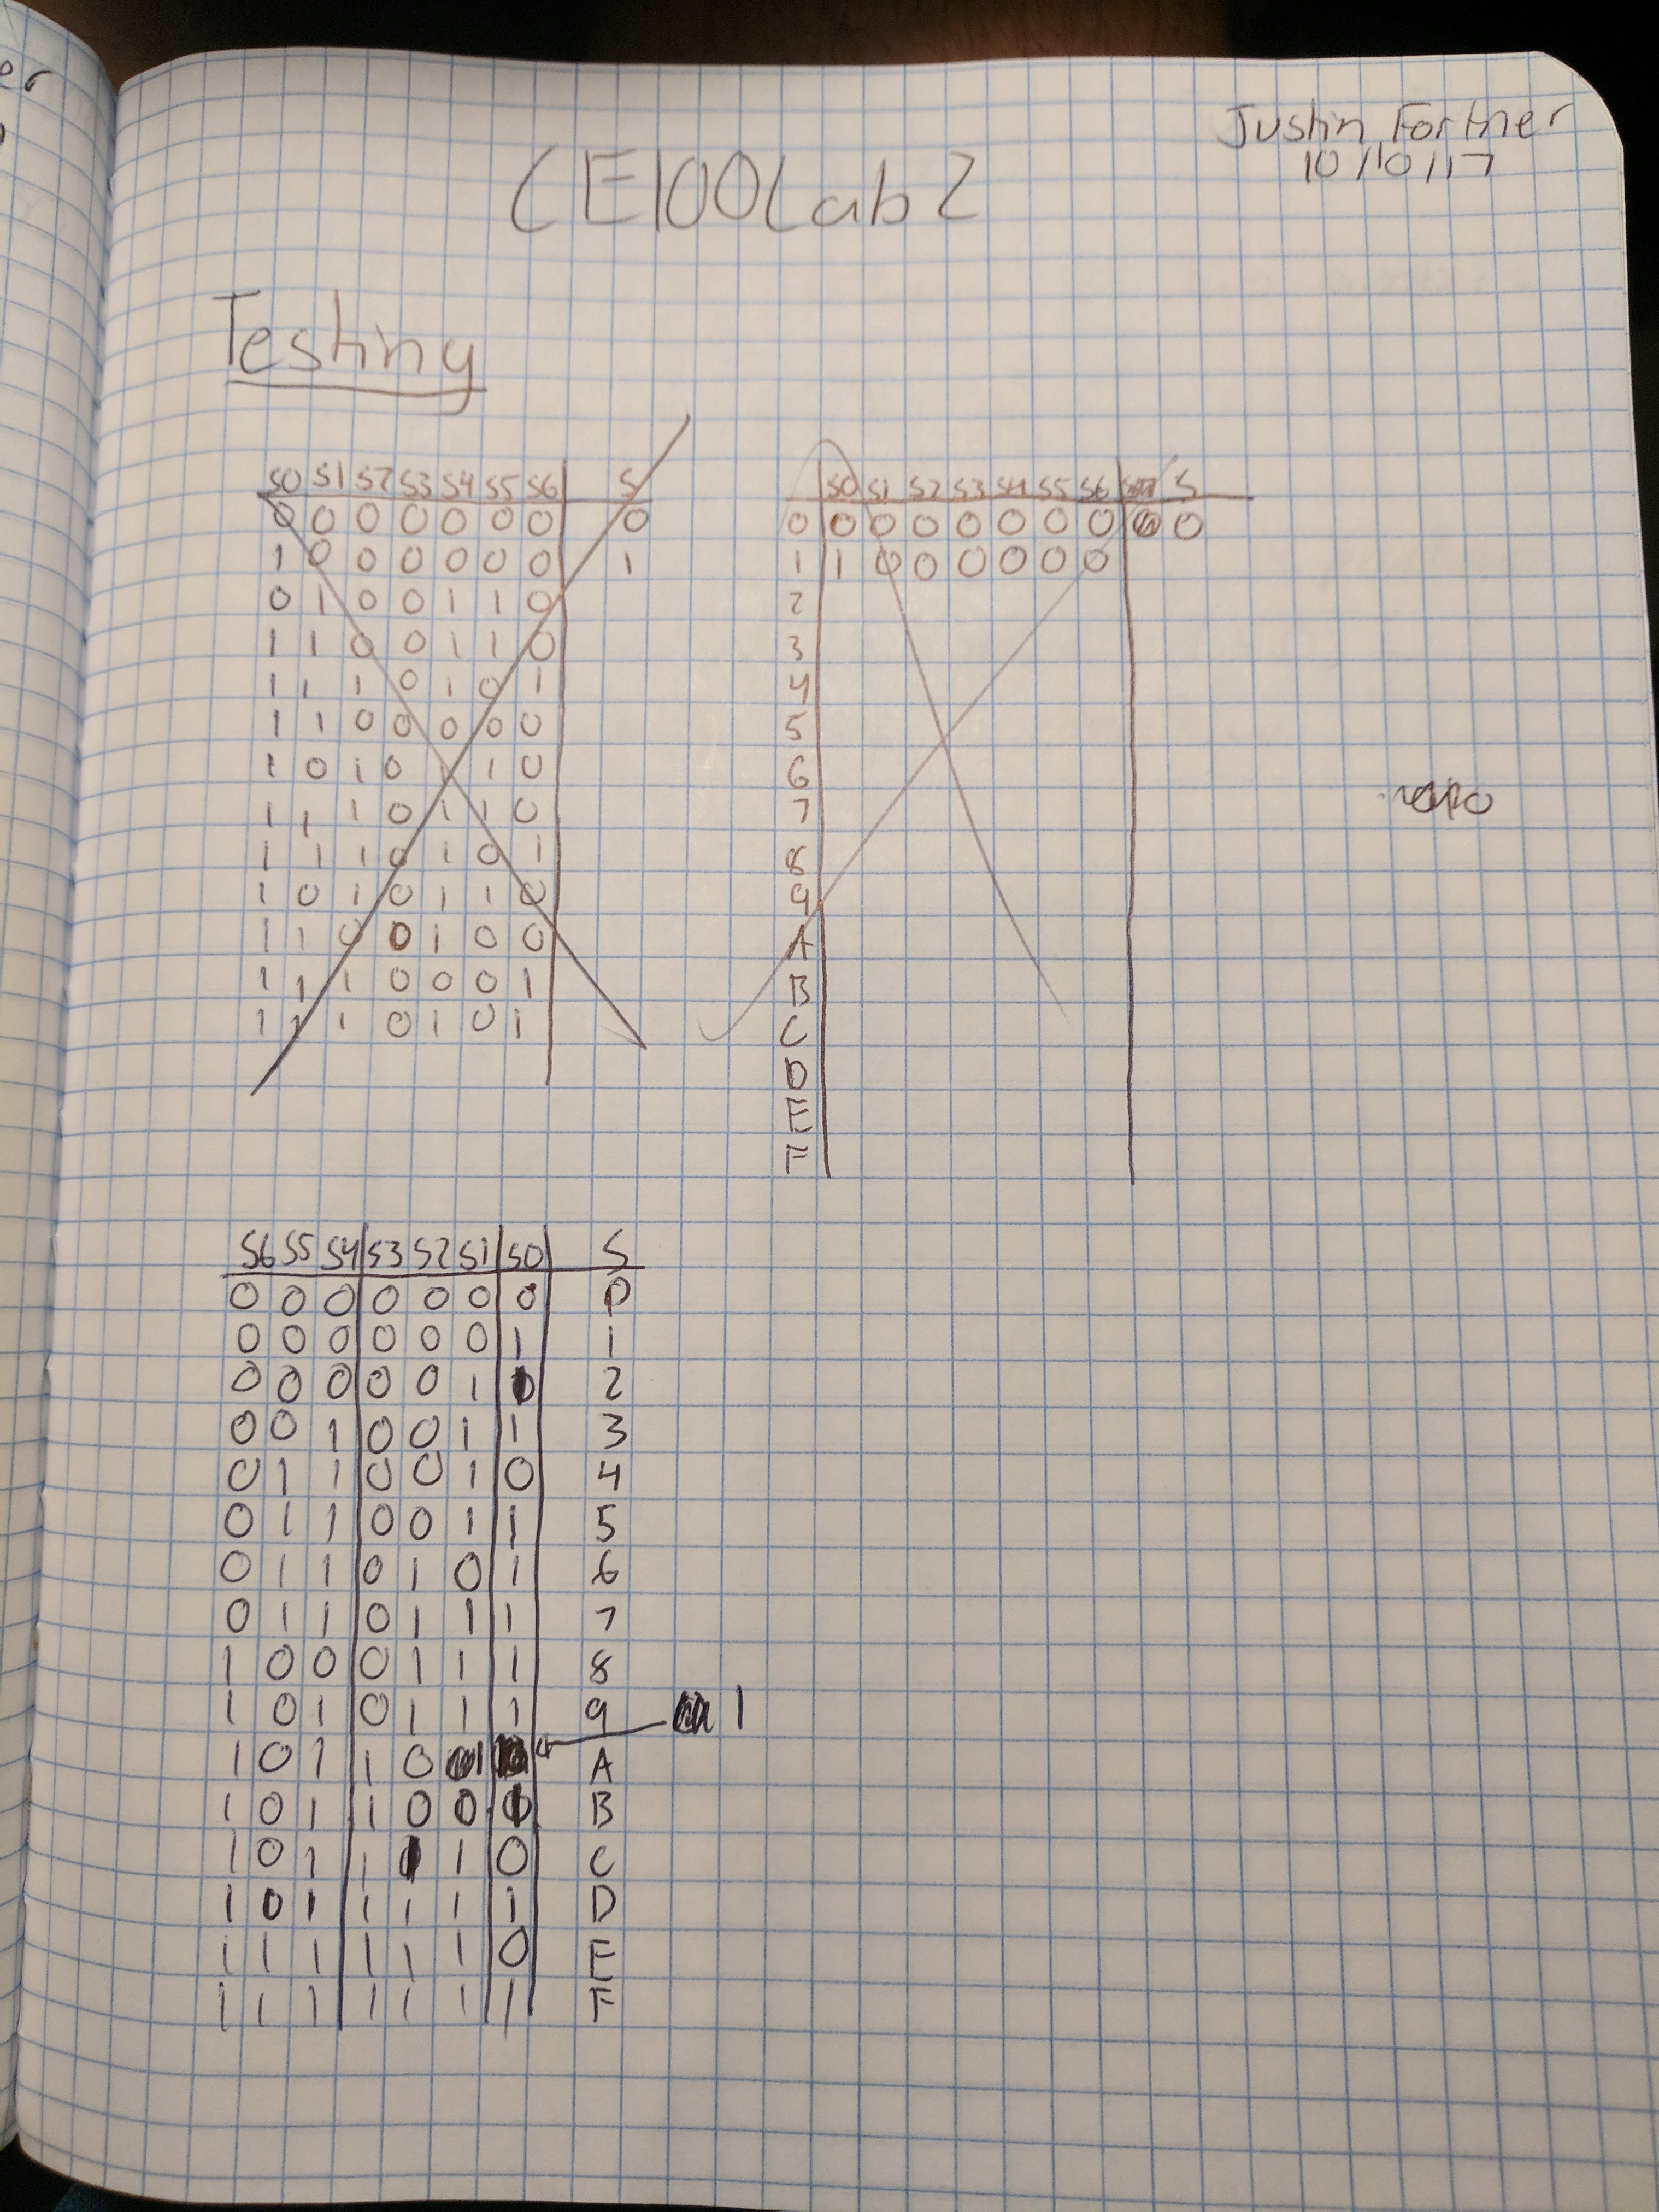 er
Justin Fortner
10/10/17
CE100Lab2
Testing
S0 S1 S2 S3 S4 S5 S6 S
0 0 0 0 0 0 0 0
1 0 0 0 0 0 0 1
0 1 0 0 1 1 0
1 1 0 0 1 1 0
1 1 1 0 1 0 1
1 1 0 0 0 0 0
1 0 1 0 1 1 0
1 1 1 0 1 1 0
1 1 1 0 1 0 1
1 0 1 0 1 1 0
1 1 0 0 1 0 0
1 1 1 0 0 0 1
1 1 1 0 1 0 1
S0 S1 S2 S3 S4 S5 S6 S
0 0 0 0 0 0 0 0 0
1 1 0 0 0 0 0 0
2
3
4
5
6
7
8
9
A
B
C
D
E
F
S6 S5 S4 S3 S2 S1 S0 S
0 0 0 0 0 0 0 0
0 0 0 0 0 0 1 1
0 0 0 0 0 1 2
0 0 1 0 0 1 1 3
0 1 1 0 0 1 0 4
0 1 1 0 0 1 1 5
0 1 1 0 1 0 1 6
0 1 1 0 1 1 1 7
1 0 0 0 1 1 1 8
1 0 1 0 1 1 1 9
1
1 0 1 1 0 1 A
1 0 1 1 0 0 B
1 0 1 1 1 0 C
1 0 1 1 1 1 1 D
1 1 1 1 1 1 0 E
1 1 1 1 1 1 1 F